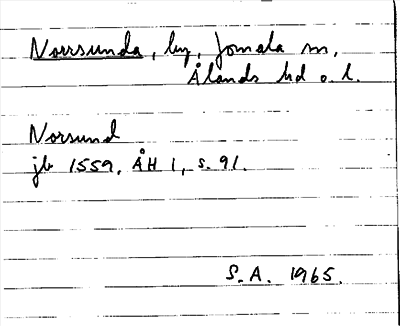 Norrsunda, by, Jomala sn,
Ålands hd o. l.
Norsund
jb 1559, ÅH 1, s. 91.
S. A. 1965.